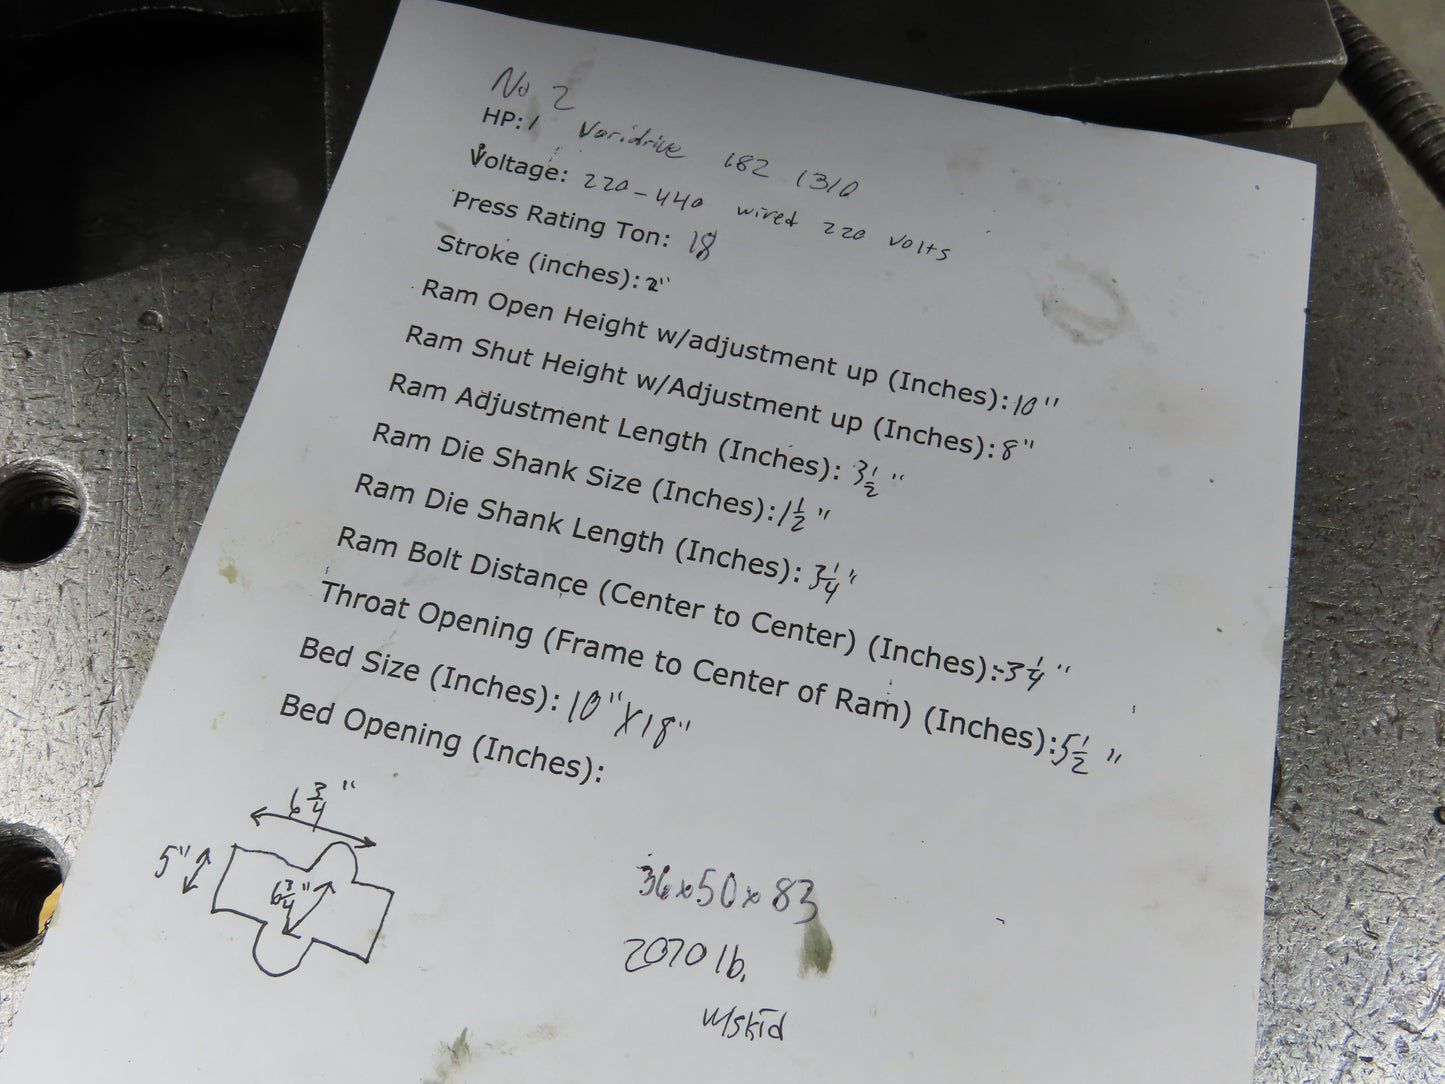 No 2
HP: 1 Varidrive 182 1310
Voltage: 220-440 wired 220 volts
Press Rating Ton: 18
Stroke (inches): 2"
Ram Open Height w/adjustment up (Inches): 10"
Ram Shut Height w/Adjustment up (Inches): 8"
Ram Adjustment Length (Inches): 3 1/2"
Ram Die Shank Size (Inches): 1 1/2"
Ram Die Shank Length (Inches): 3 1/4"
Ram Bolt Distance (Center to Center) (Inches): 3 1/4"
Throat Opening (Frame to Center of Ram) (Inches): 5 1/2"
Bed Size (Inches): 10" X 18"
Bed Opening (Inches):
6 3/4"
5"
6 3/4"
36x50x83
2070 lb.
w/skid